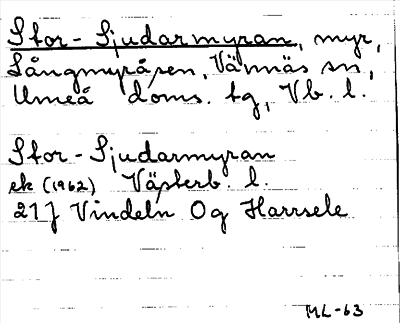 Stor-Sjudarmyran, myr,
Långmyråsen, Vännäs sn,
Umeå doms. tg, Vb. l.
Stor-Sjudarmyran
ek (1962) Västerb. l.
21J Vindeln Og Harrsele
ML-63